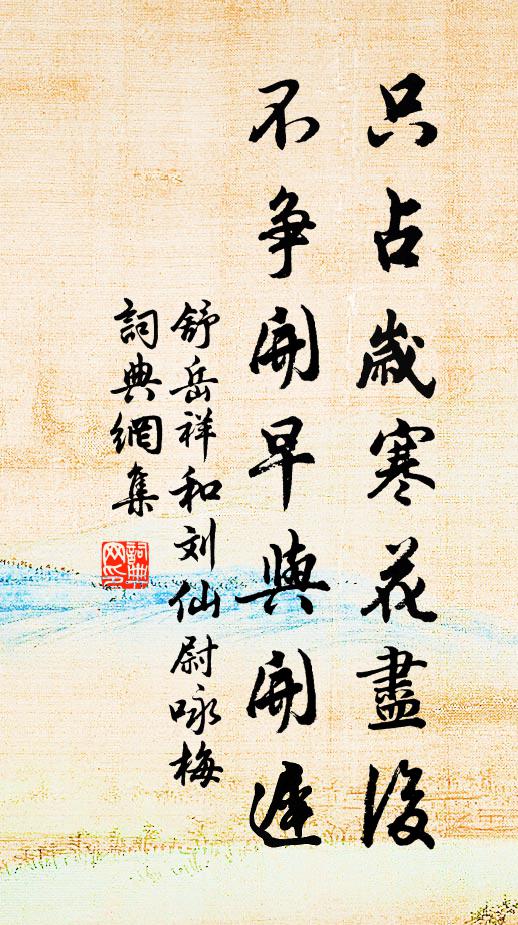 只占歲寒花盡後
不争開早與開遲
舒岳祥和刘仙尉咏梅
詞典網集
詞典网印